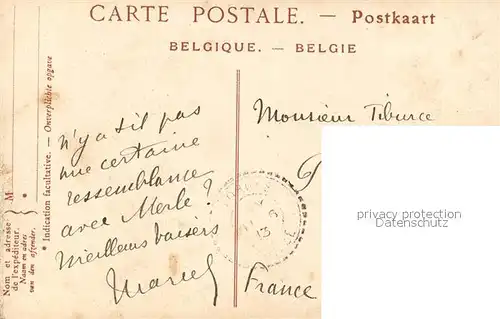 CARTE POSTALE. — Postkaart
BELGIQUE. — BELGIE
Nom et adresse
de l'expéditeur.
Naam en adres
van den afzender.
M
*
* Indication facultative. — Onverplichte opgave
n'y a t il pas
une certaine
ressemblance
avec Merle ?
Meilleurs baisers
Marcel
Monsieur Tiburce
G
France
privacy protection
Datenschutz